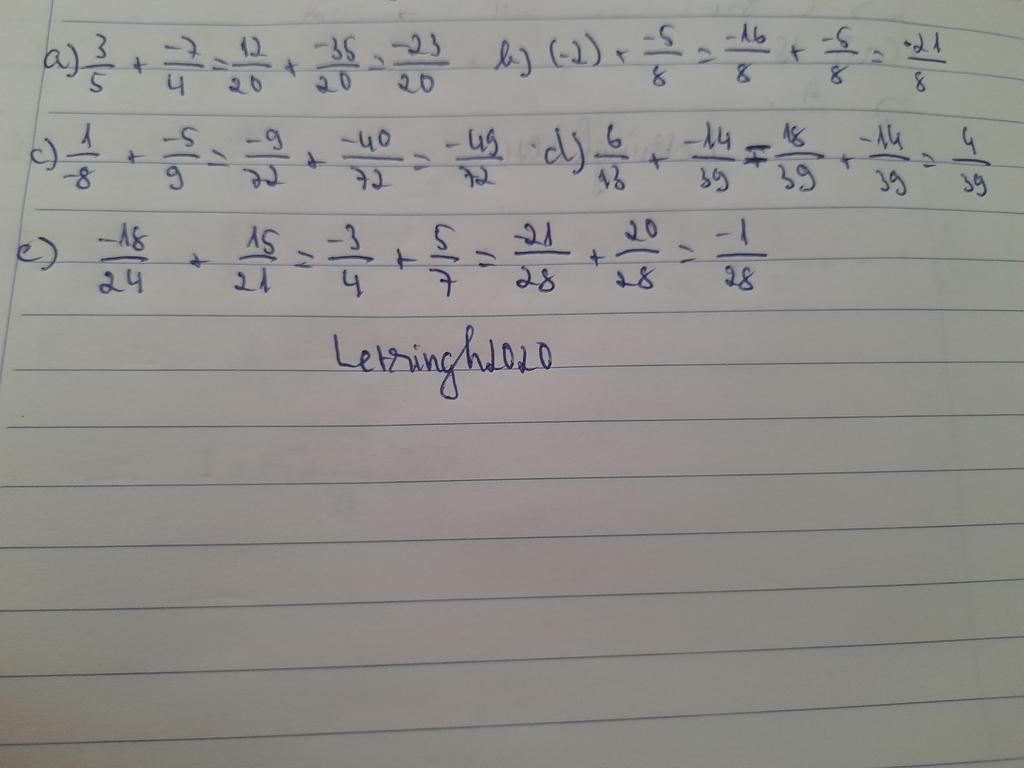 a) 3/5 + -7/4 = 12/20 + -35/20 = -23/20 b) (-2) + -5/8 = -16/8 + -5/8 = -21/8
c) 1/-8 + -5/9 = -9/72 + -40/72 = -49/72 d) 6/13 + -14/39 = 18/39 + -14/39 = 4/39
e) -18/24 + 15/21 = -3/4 + 5/7 = -21/28 + 20/28 = -1/28